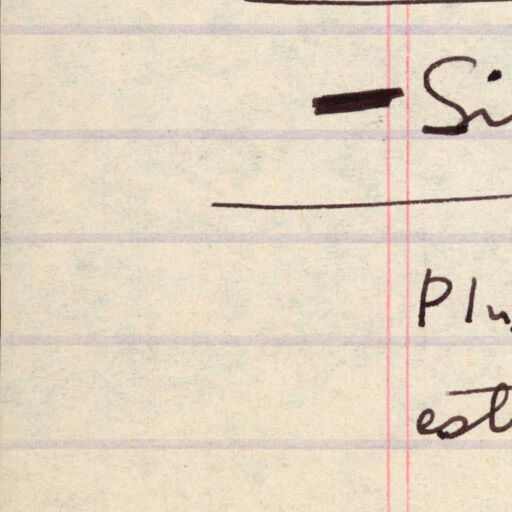 - Si
Plu
est